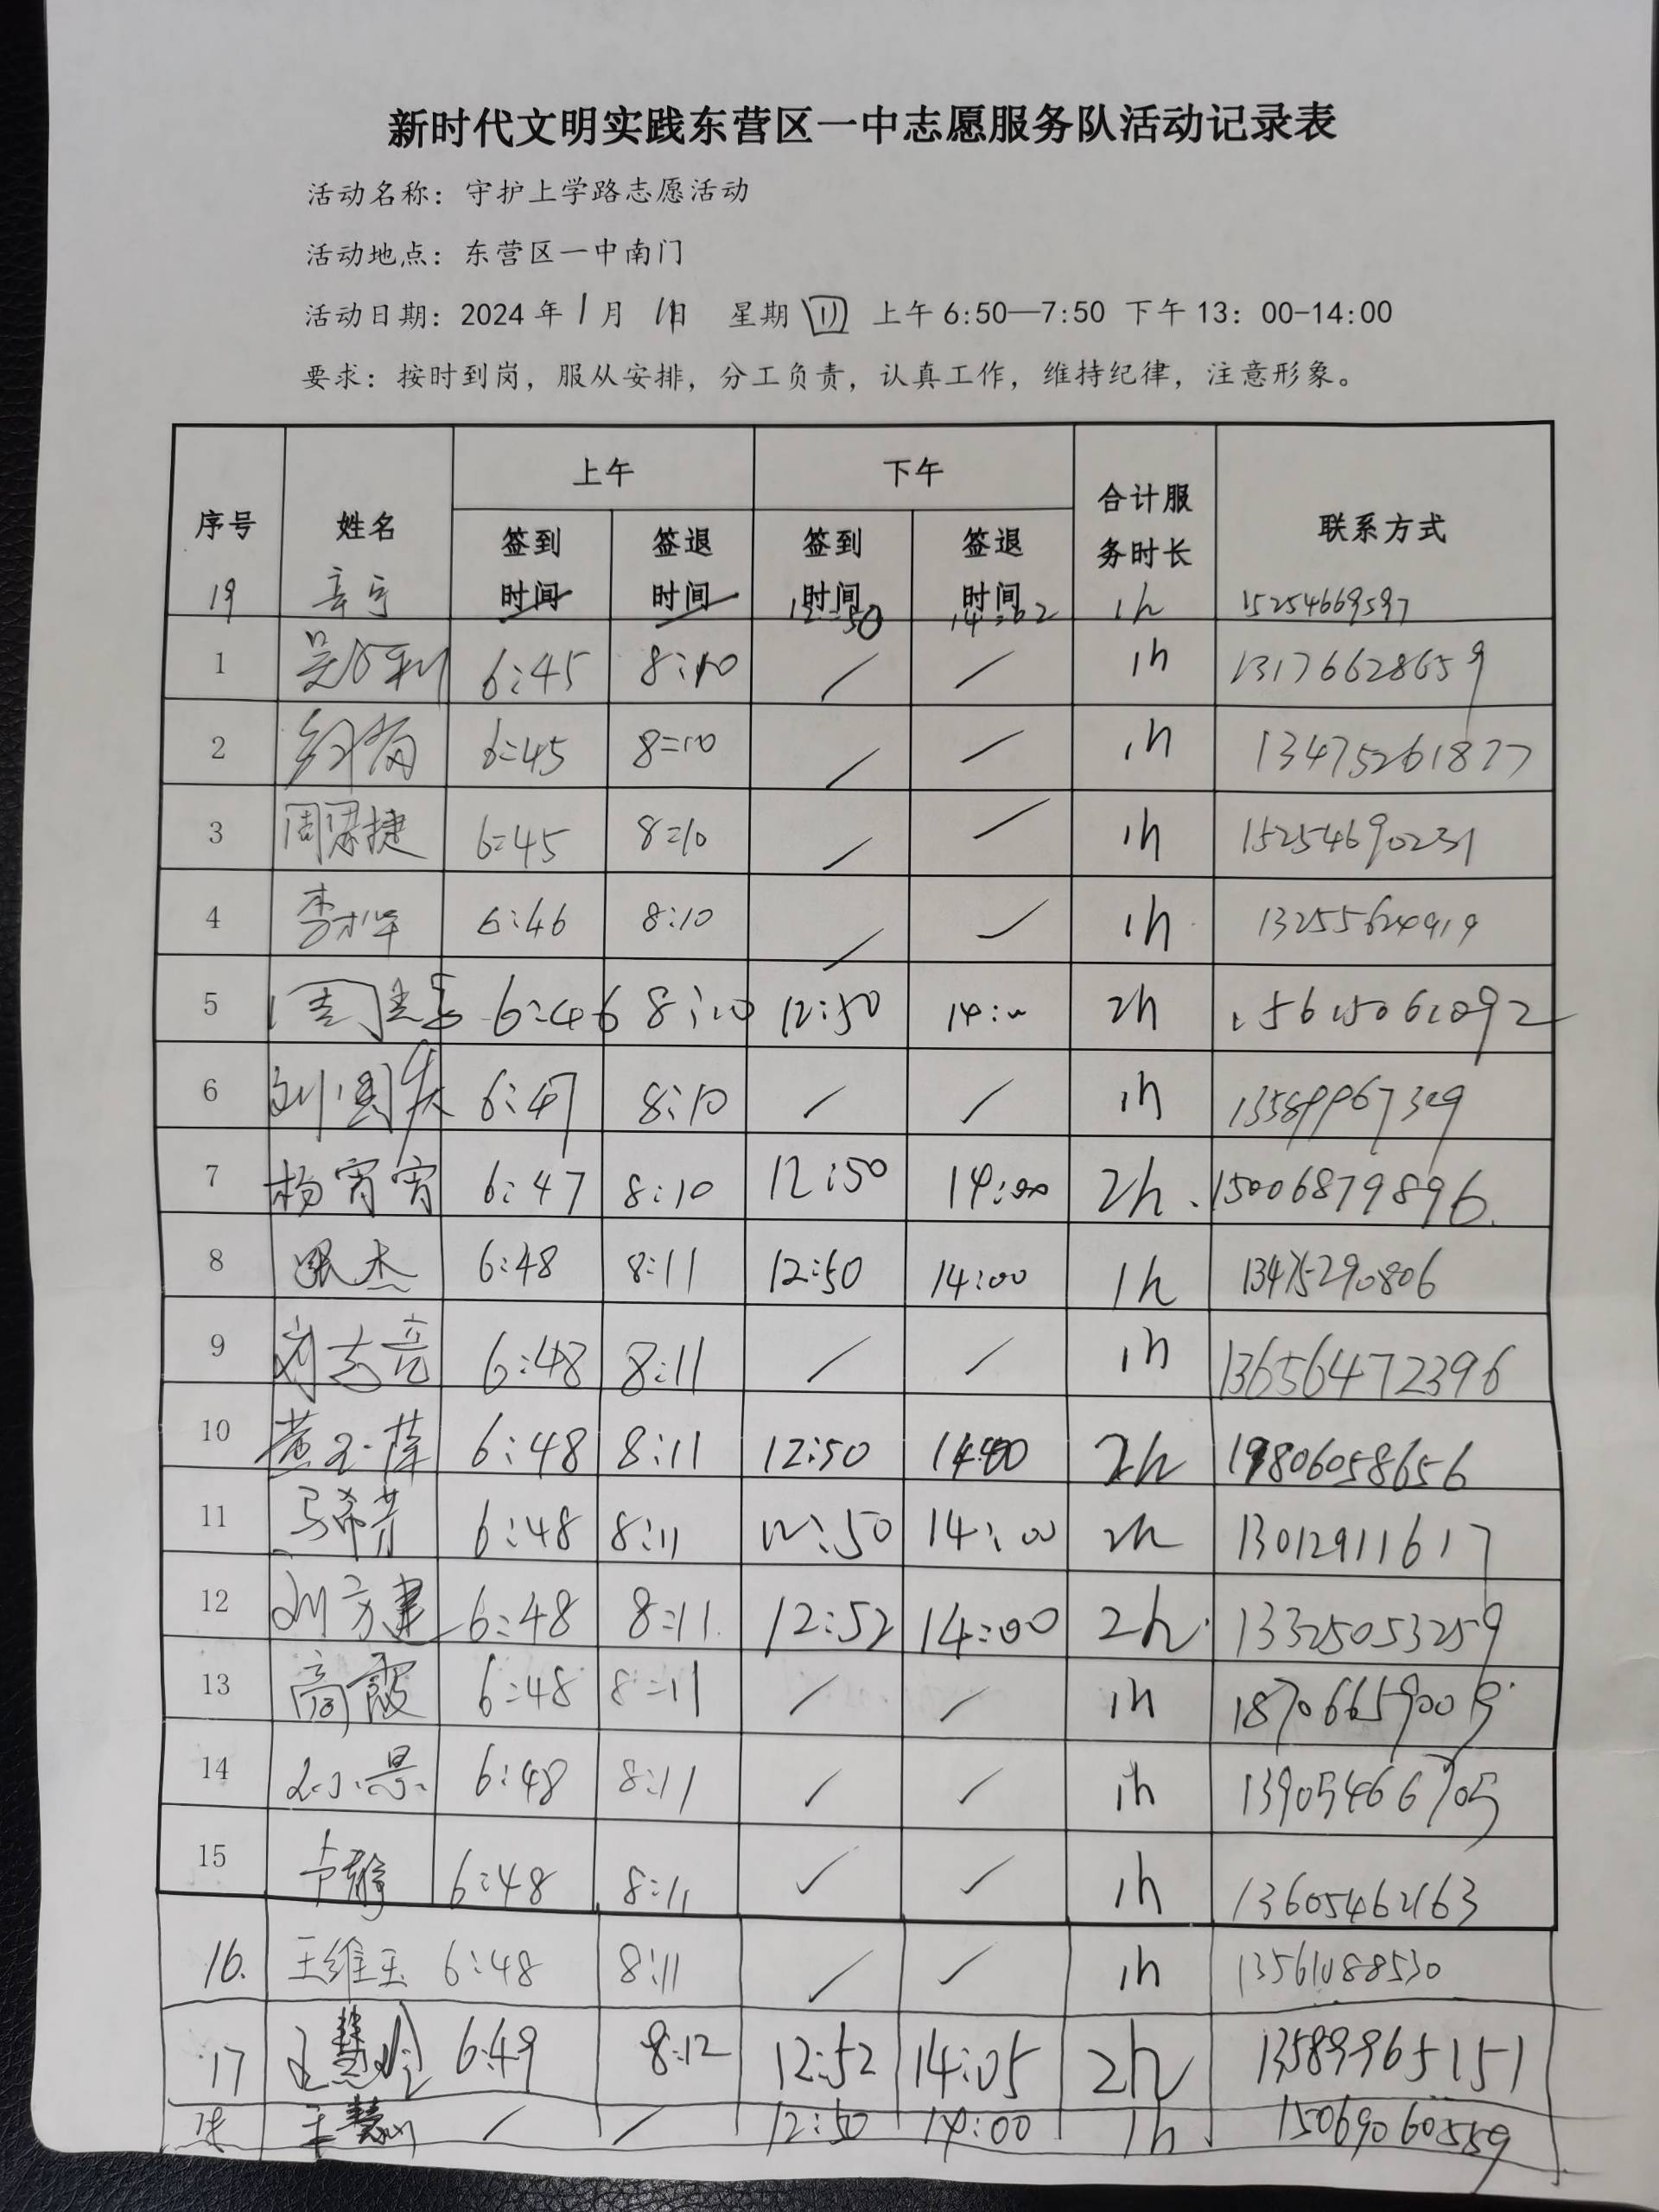 新时代文明实践东营区一中志愿服务队活动记录表
活动名称：守护上学路志愿活动
活动地点：东营区一中南门
活动日期：2024年1月11日 星期四 上午6:50—7:50 下午13：00-14:00
要求：按时到岗，服从安排，分工负责，认真工作，维持纪律，注意形象。
序号 姓名 上午 下午 合计服务时长 联系方式
签到时间 签退时间 签到时间 签退时间
19 辛宁 / / 12:50 14:02 1h 15254669597
1 6:45 8:10 / / 1h 13176628659
2 6:45 8:10 / / 1h 13475261877
3 周梁捷 6:45 8:10 / / 1h 15254690231
4 李 6:46 8:10 / / 1h 13255624919
5 周 6:46 8:10 12:50 14:00 2h 15615061092
6 刘国庆 6:47 8:10 / / 1h
7 杨宵宵 6:47 8:10 12:50 14:00 2h 15006879896
8 杰 6:48 8:11 12:50 14:00 1h 13475290806
9 刘志亮 6:48 8:11 / / 1h 13656472396
10 黄玉萍 6:48 8:11 12:50 14:00 2h 19806058656
11 马希芳 6:48 8:11 12:50 14:00 2h 13012911617
12 刘方建 6:48 8:11 12:52 14:00 2h 13325053259
13 高霞 6:48 8:11 / / 1h 18706659009
14 景 6:48 8:11 / / 1h 13905466705
15 卢 6:48 8:11 / / 1h 13605462163
16. 王维玉 6:48 8:11 / / 1h 13561088530
17 王慧玲 6:49 8:12 12:52 14:05 2h 13589965151
王慧 / / 12:50 14:00 1h 15069060559